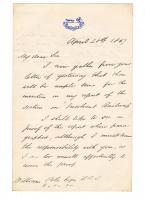 April 26th 1867
My dear Sir
I now gather from your
letter of yesterday that there
will be ample time for the
insertion in my report of the
section on
I shall like to see a
proof of the report when para-
graphed, although I must leave
the responsibility with you, as
I am too much
to revise the proof
William Pole Esqre F.R.S.